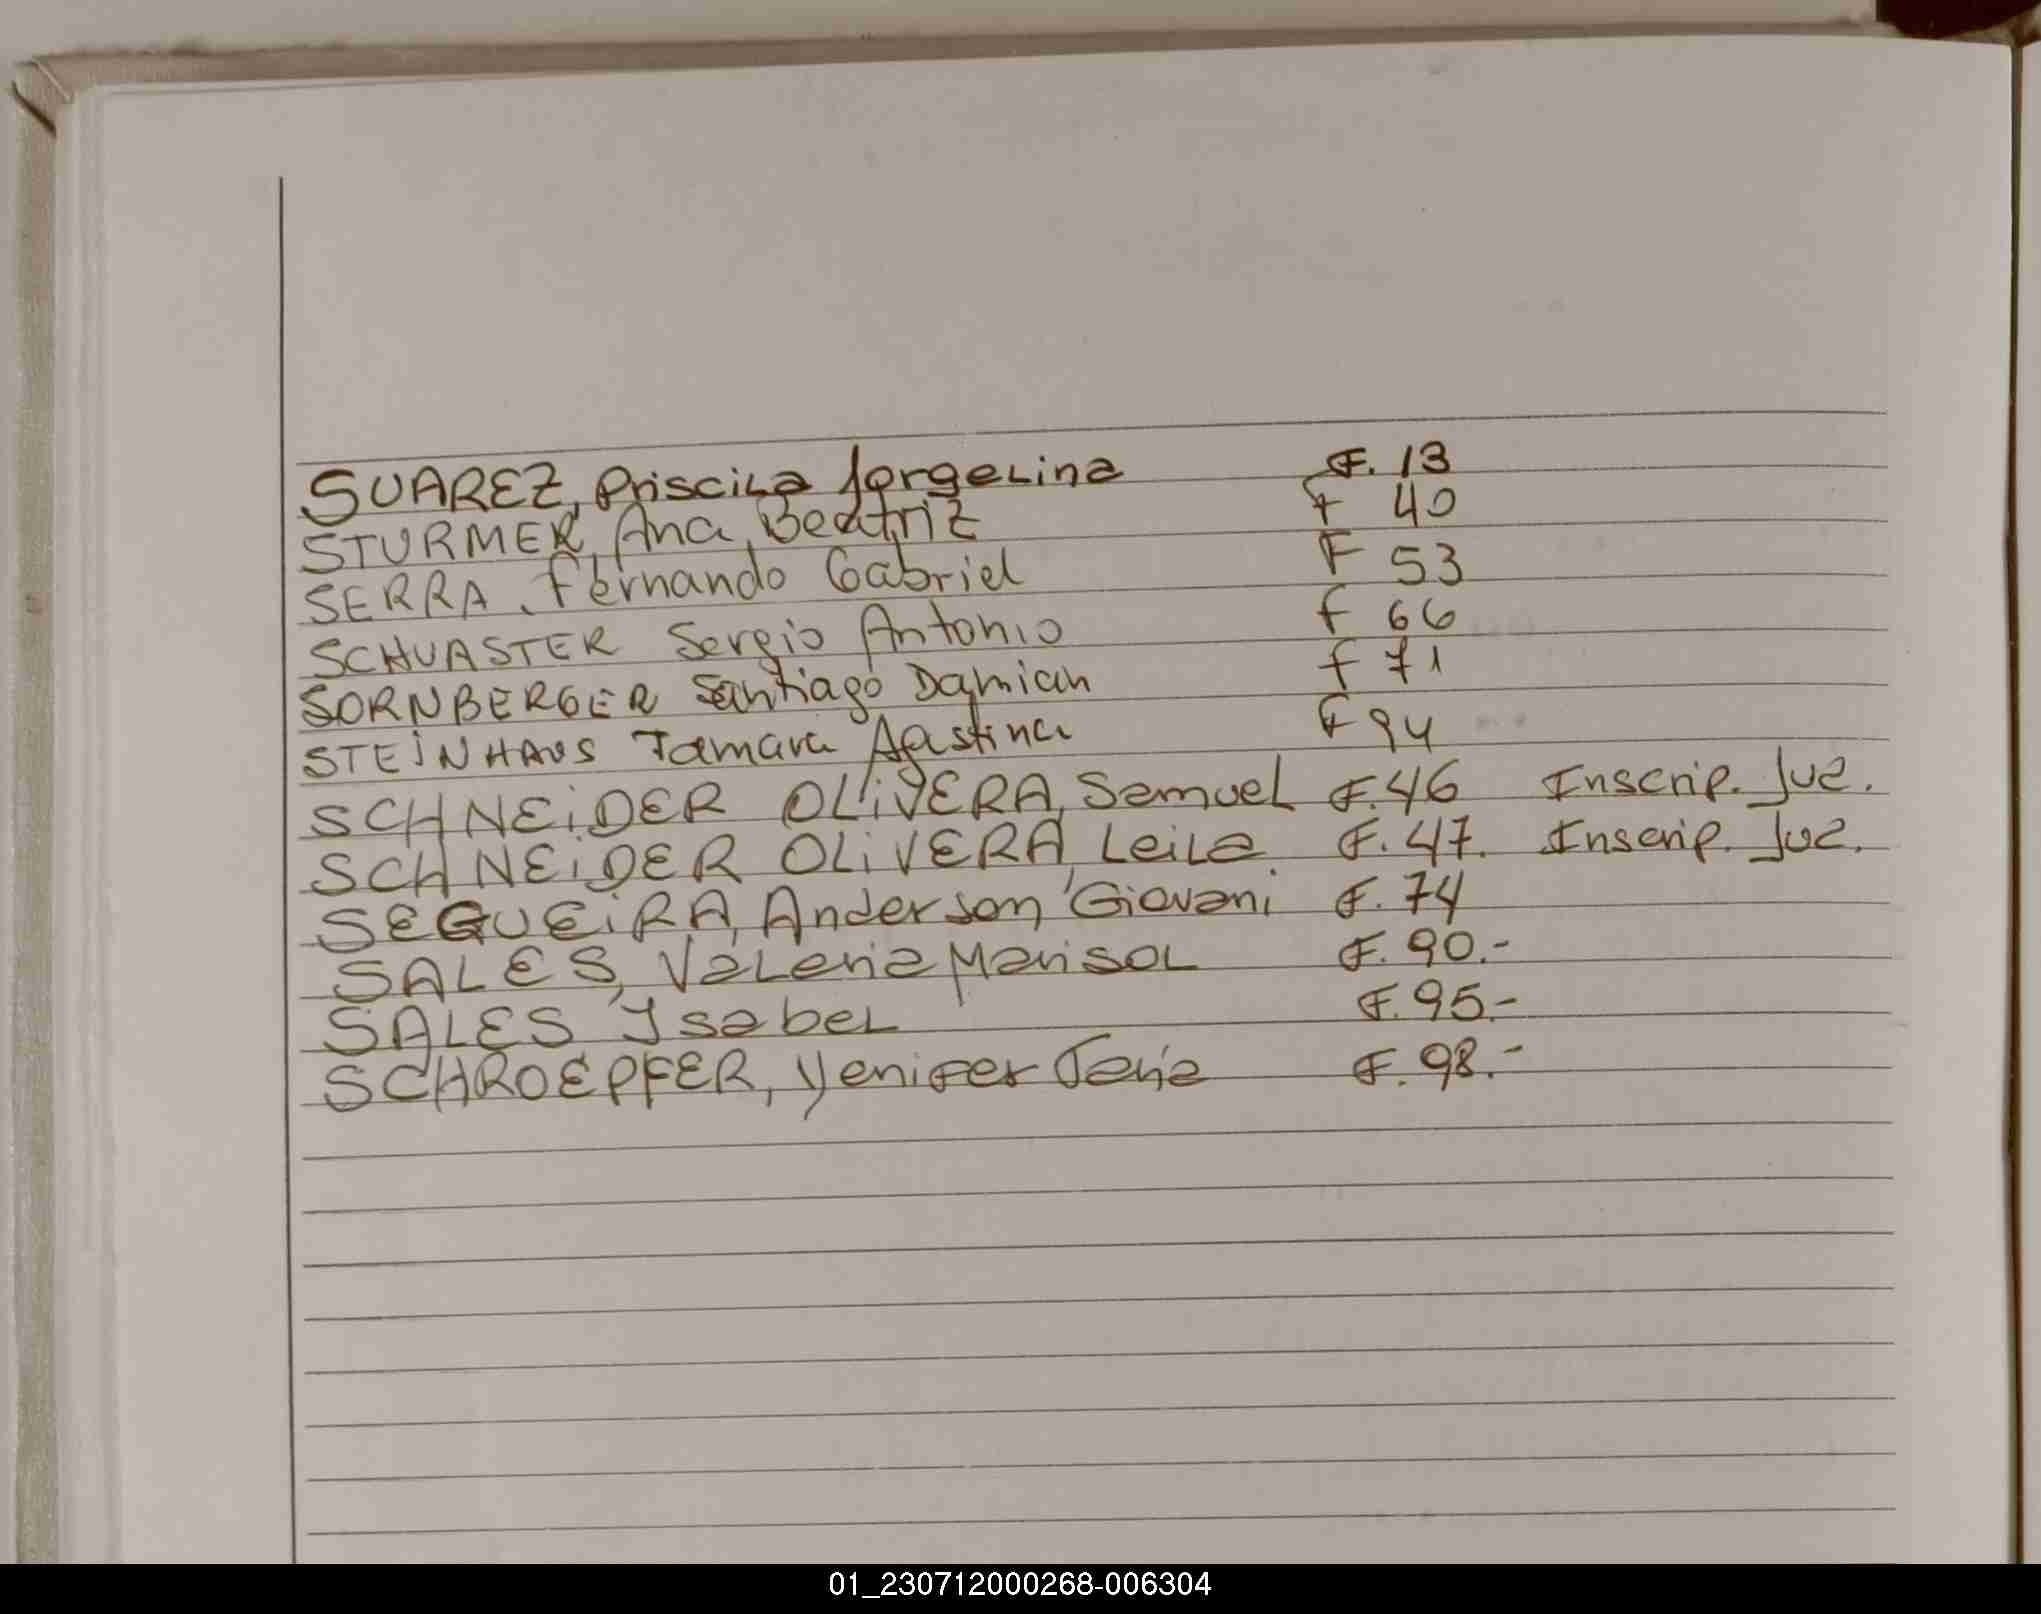 SUAREZ, Priscila Jorgelina F. 13
STURMER, Ana Beatriz F 40
SERRA, Fernando Gabriel F 53
SCHUASTER Sergio Antonio F 66
SORNBERGER Santiago Damian F 71
STEINHAUS Tamara Agastina F 94
SCHNEiDER OLiVERA, Samuel F. 46 Inscrip. Juz.
SCHNEiDER OLiVERA, Leila F. 47. Inscrip. Juz.
SEQUEiRA, Anderson Giovani F. 74
SALES, Valeria Marisol F. 90.-
SALES Isabel F. 95.-
SCHROEPFER, Yenifer Tania F. 98.-
01_230712000268-006304